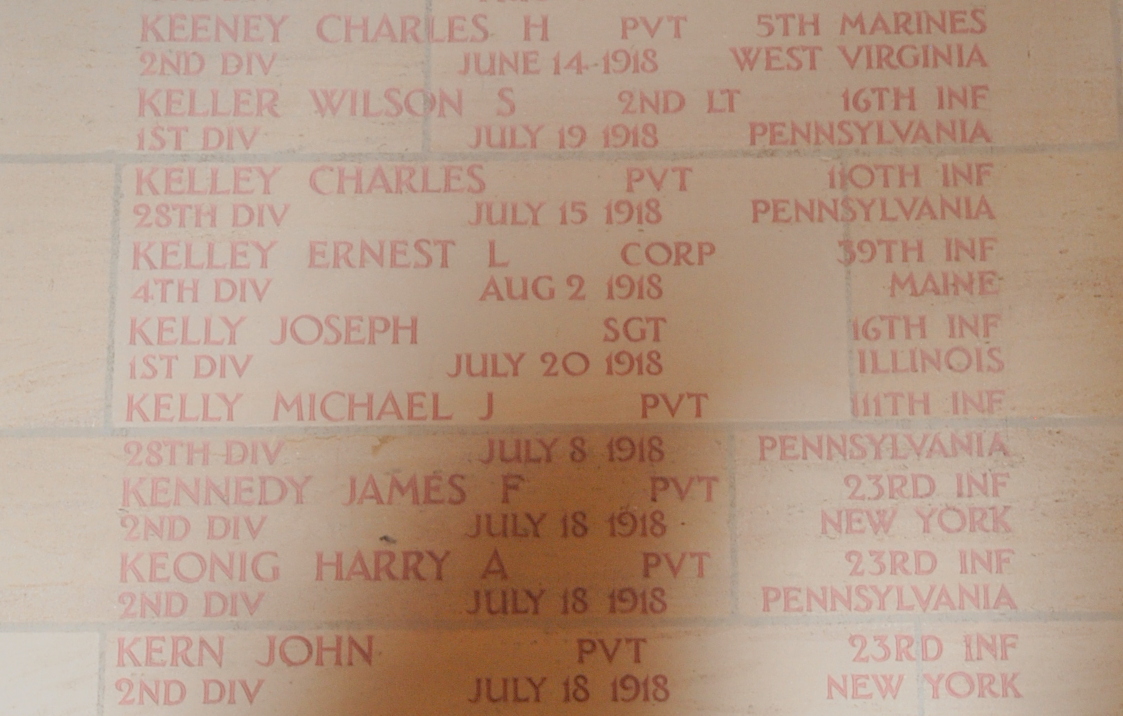 KEENEY CHARLES H PVT 5TH MARINES
2ND DIV JUNE 14-1918 WEST VIRGINIA
KELLER WILSON S 2ND LT 16TH INF
1ST DIV JULY 19 1918 PENNSYLVANIA
KELLEY CHARLES PVT 110TH INF
28TH DIV JULY 15 1918 PENNSYLVANIA
KELLEY ERNEST L CORP 39TH INF
4TH DIV AUG 2 1918 MAINE
KELLY JOSEPH SGT 16TH INF
1ST DIV JULY 20 1918 ILLINOIS
KELLY MICHAEL J PVT 111TH INF
28TH DIV JULY 8 1918 PENNSYLVANIA
KENNEDY JAMES F PVT 23RD INF
2ND DIV JULY 18 1918 NEW YORK
KEONIG HARRY A PVT 23RD INF
2ND DIV JULY 18 1918 PENNSYLVANIA
KERN JOHN PVT 23RD INF
2ND DIV JULY 18 1918 NEW YORK